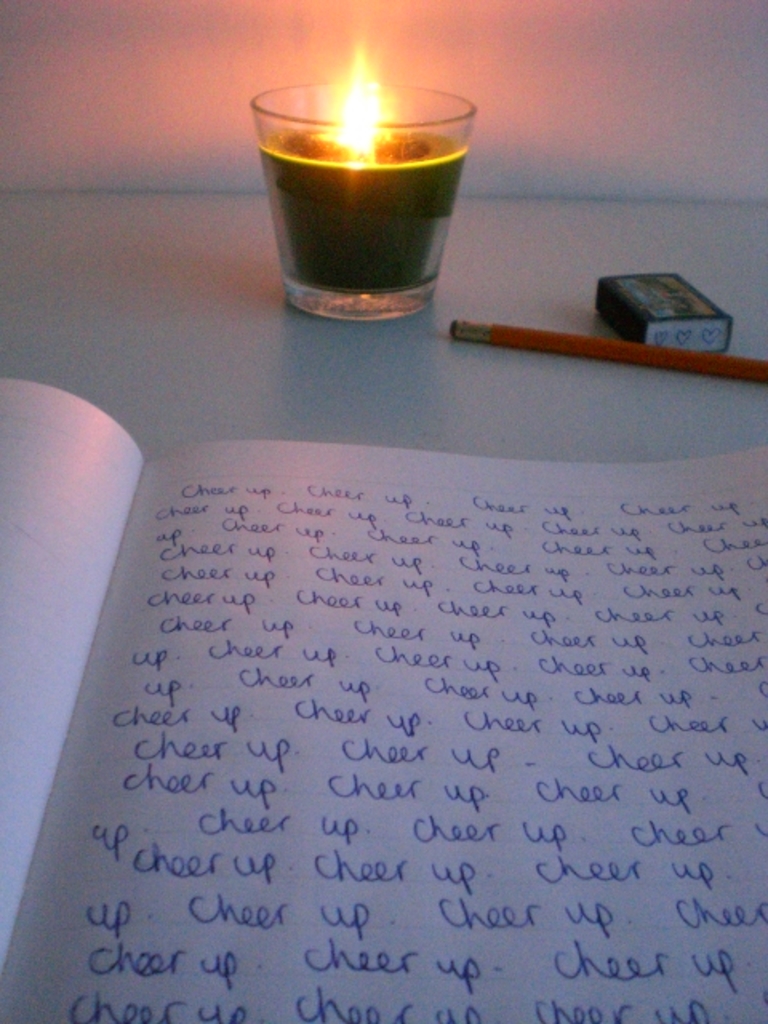 Cheer up. Cheer up. Cheer up. Cheer up
cheer up. Cheer up. Cheer up. Cheer up. Cheer up
up. Cheer up. Cheer up. Cheer up. Cheer
Cheer up. Cheer up. Cheer up. Cheer up.
Cheer up. Cheer up. Cheer up. Cheer up.
cheer up. Cheer up. Cheer up. Cheer up.
Cheer up. Cheer up. Cheer up. Cheer
up. Cheer up. Cheer up. Cheer up. Cheer
up. Cheer up. Cheer up. Cheer up.
cheer up. Cheer up. Cheer up. Cheer
Cheer up. Cheer up - Cheer up.
cheer up. Cheer up. Cheer up.
up. Cheer up. Cheer up. Cheer
Cheer up. Cheer up. Cheer up.
up. Cheer up. Cheer up. Cheer
Cheer up. Cheer up. Cheer up.
Cheer up. Cheer up. Cheer up.